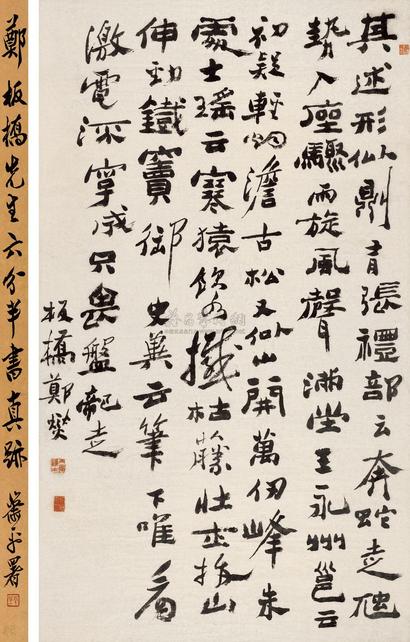 其述形似則有張禮部云奔蛇走虺
勢入座驟雨旋風聲滿堂王永州邕云
初疑輕烟澹古松又似山開萬仞峰朱
處士瑤云寒猿飲水撼枯藤壯士拔山
伸勁鐵竇御史冀云筆下唯看
激電流字成只畏盤龍走
板橋鄭燮
鄭板橋先生六分半書真跡 蕭平署